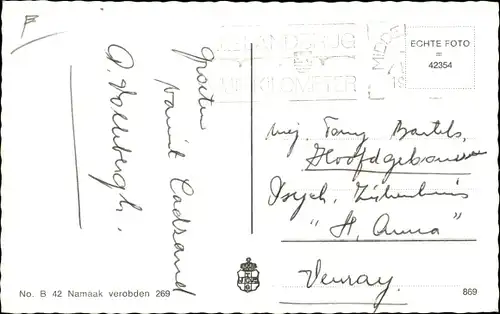 Groeten
vanuit Cadzand
P. Vollebergh.
ZEELANDBRUG
KILOMETER
MIDDE
ECHTE FOTO
=
42354
mej. Tony Bartels,
Hoofdgebouw
Psych. Ziekenhuis
"St. Anna"
Venray.
No. B 42 Namaak verobden 269
869